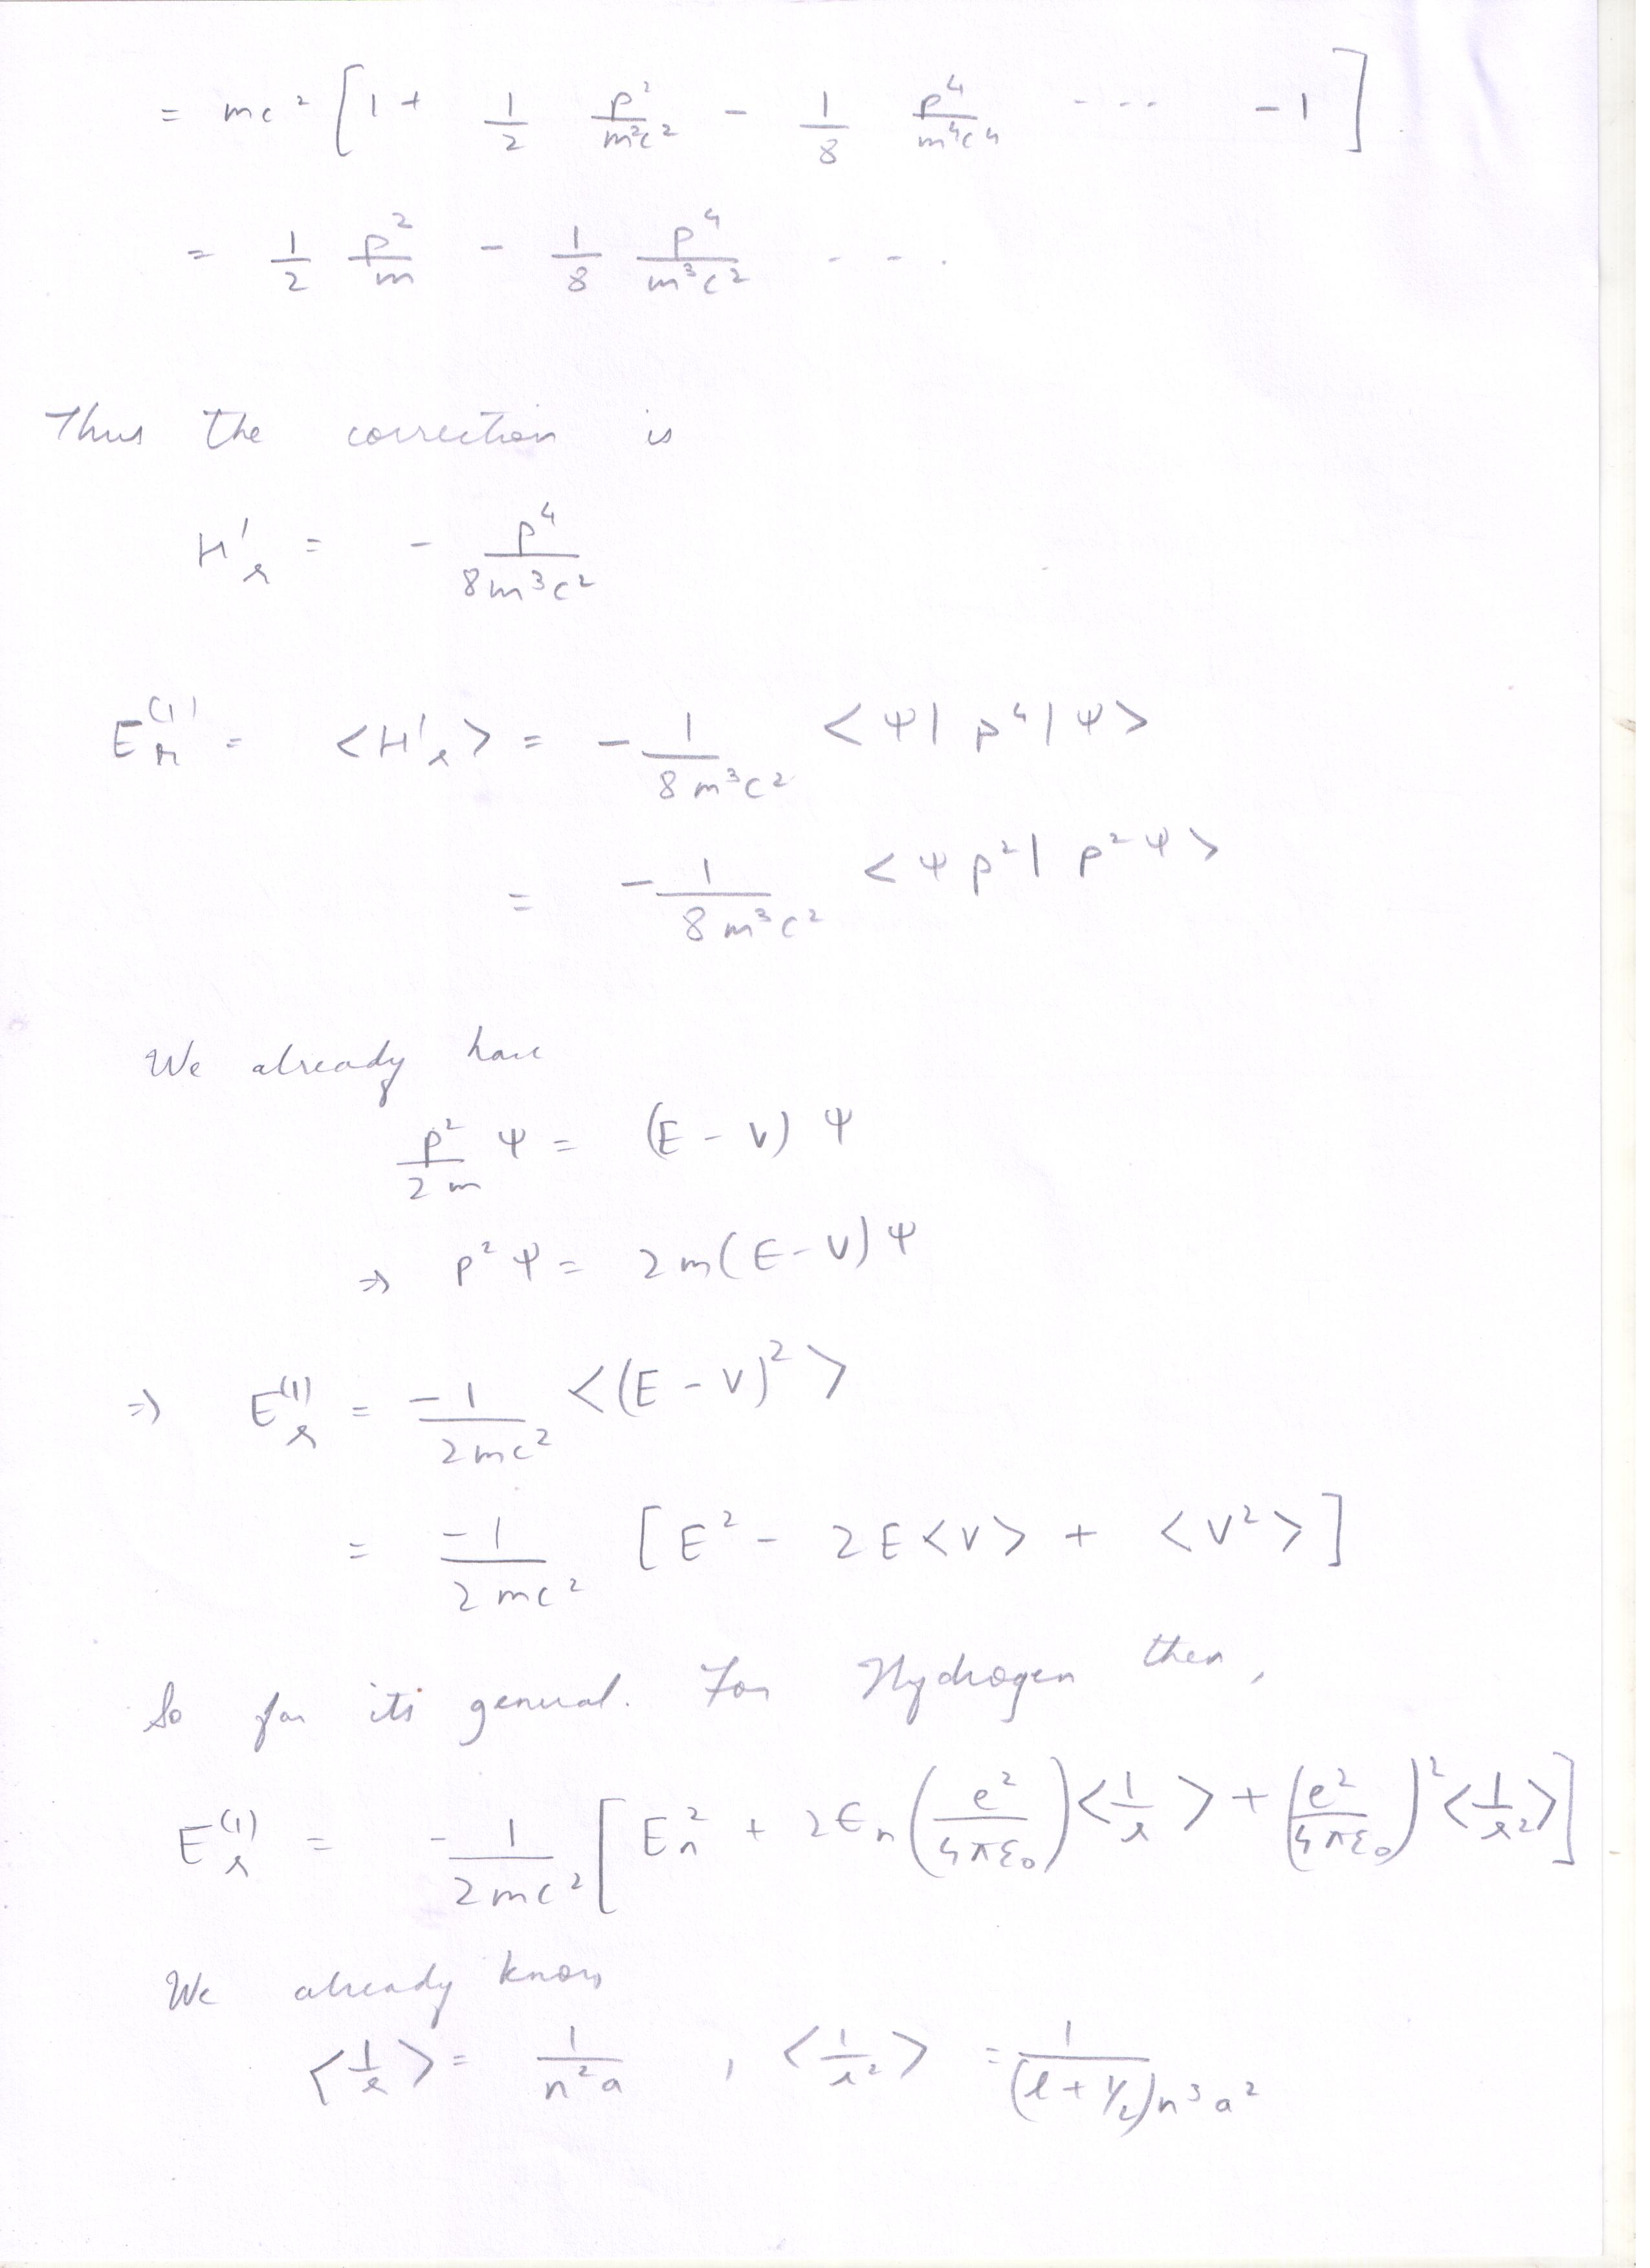 = mc² [1 + 1/2 p²/m²c² - 1/8 p⁴/m⁴c⁴ --- -1]
= 1/2 p²/m - 1/8 p⁴/m³c² - - - .
Thus the correction is
H'_r = - p⁴/8m³c²
E_n^(1) = <H'_r> = - 1/8m³c² <Ψ| p⁴ |Ψ>
= - 1/8m³c² <Ψ p²| p² Ψ>
We already have
p²/2m Ψ = (E - V) Ψ
⇒ p² Ψ = 2m(E - V) Ψ
⇒ E_r^(1) = -1/2mc² <(E - V)²>
= -1/2mc² [E² - 2E<V> + <V²>]
So far its general. For Hydrogen then,
E_r^(1) = - 1/2mc² [E_n² + 2E_n (e²/4πε₀) <1/r> + (e²/4πε₀)² <1/r²>]
We already know
<1/r> = 1/n²a , <1/r²> = 1/(l + 1/2)n³a²